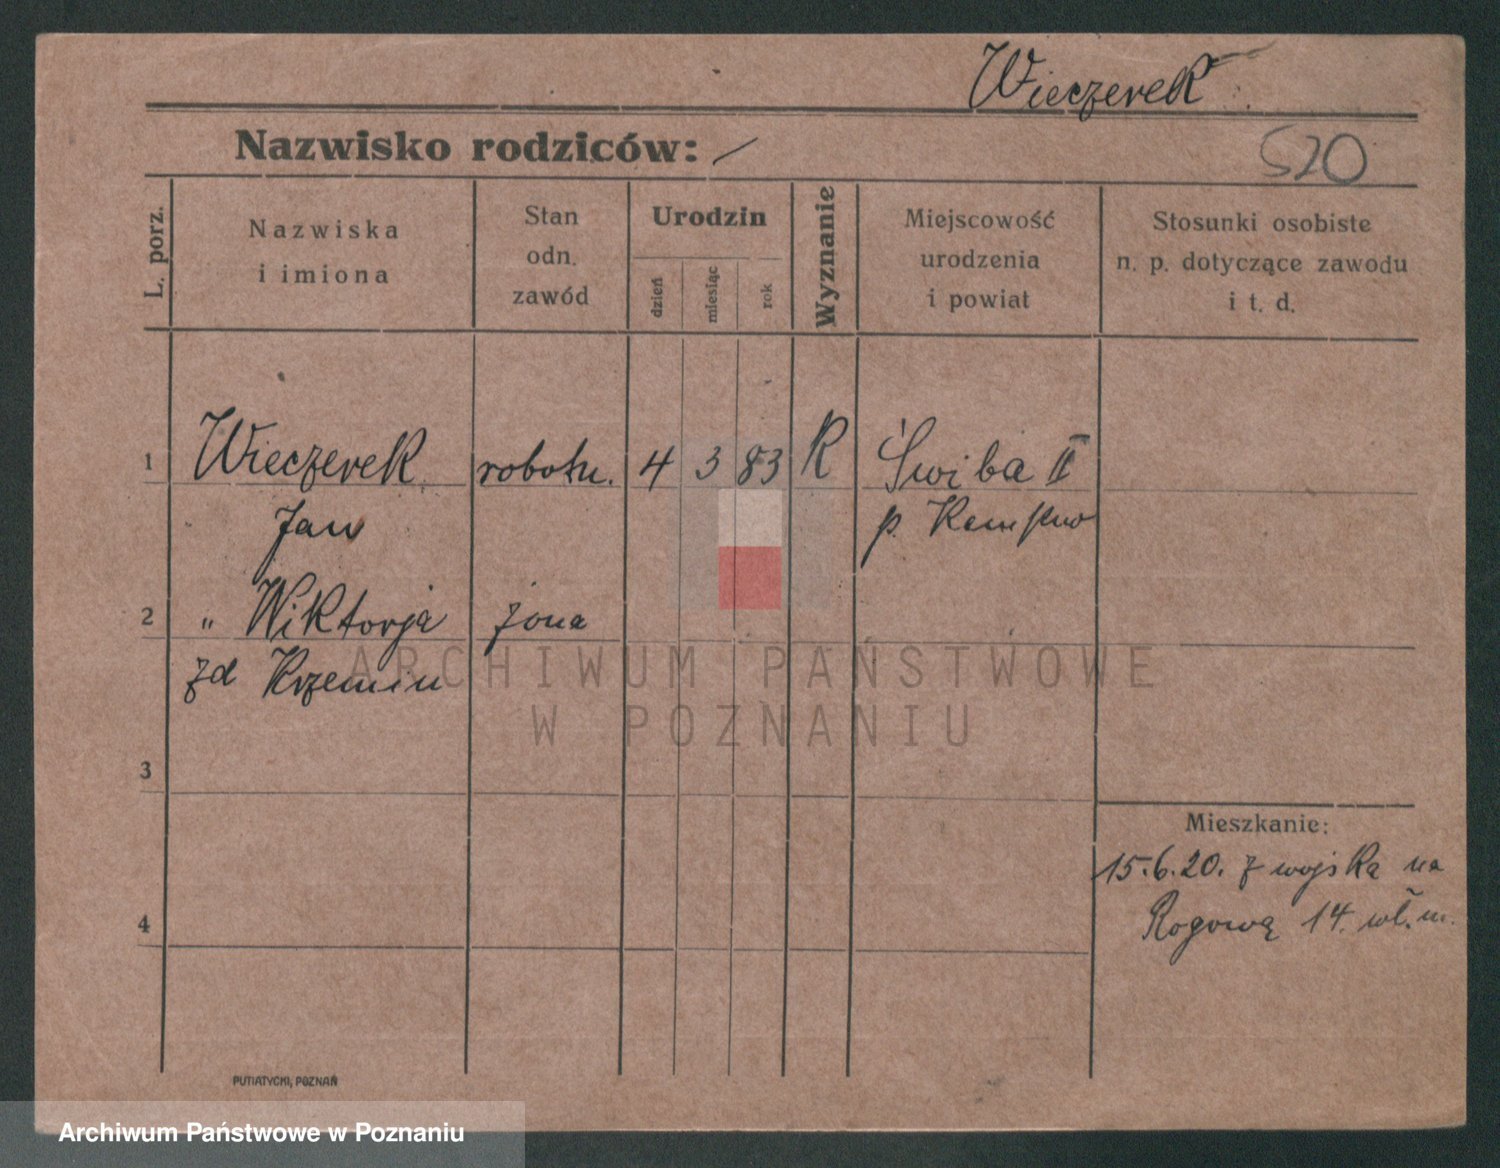 Wieczerek
Nazwisko rodziców: /
520
L. porz.
Nazwiska
i imiona
Stan
odn.
zawód
Urodzin
dzień
miesiąc
rok
Wyznanie
Miejscowość
urodzenia
i powiat
Stosunki osobiste
n. p. dotyczące zawodu
i t. d.
1 Wieczerek robotn. 4 3 83 R Świba II
Jan p. Kempno
2 " Wiktorja żona
zd Krzemin
3
Mieszkanie:
15.6.20. z wojska na
4 Rogową 14. wł. m.
PUTIATYCKI, POZNAŃ
ARCHIWUM PAŃSTWOWE
W POZNANIU
Archiwum Państwowe w Poznaniu